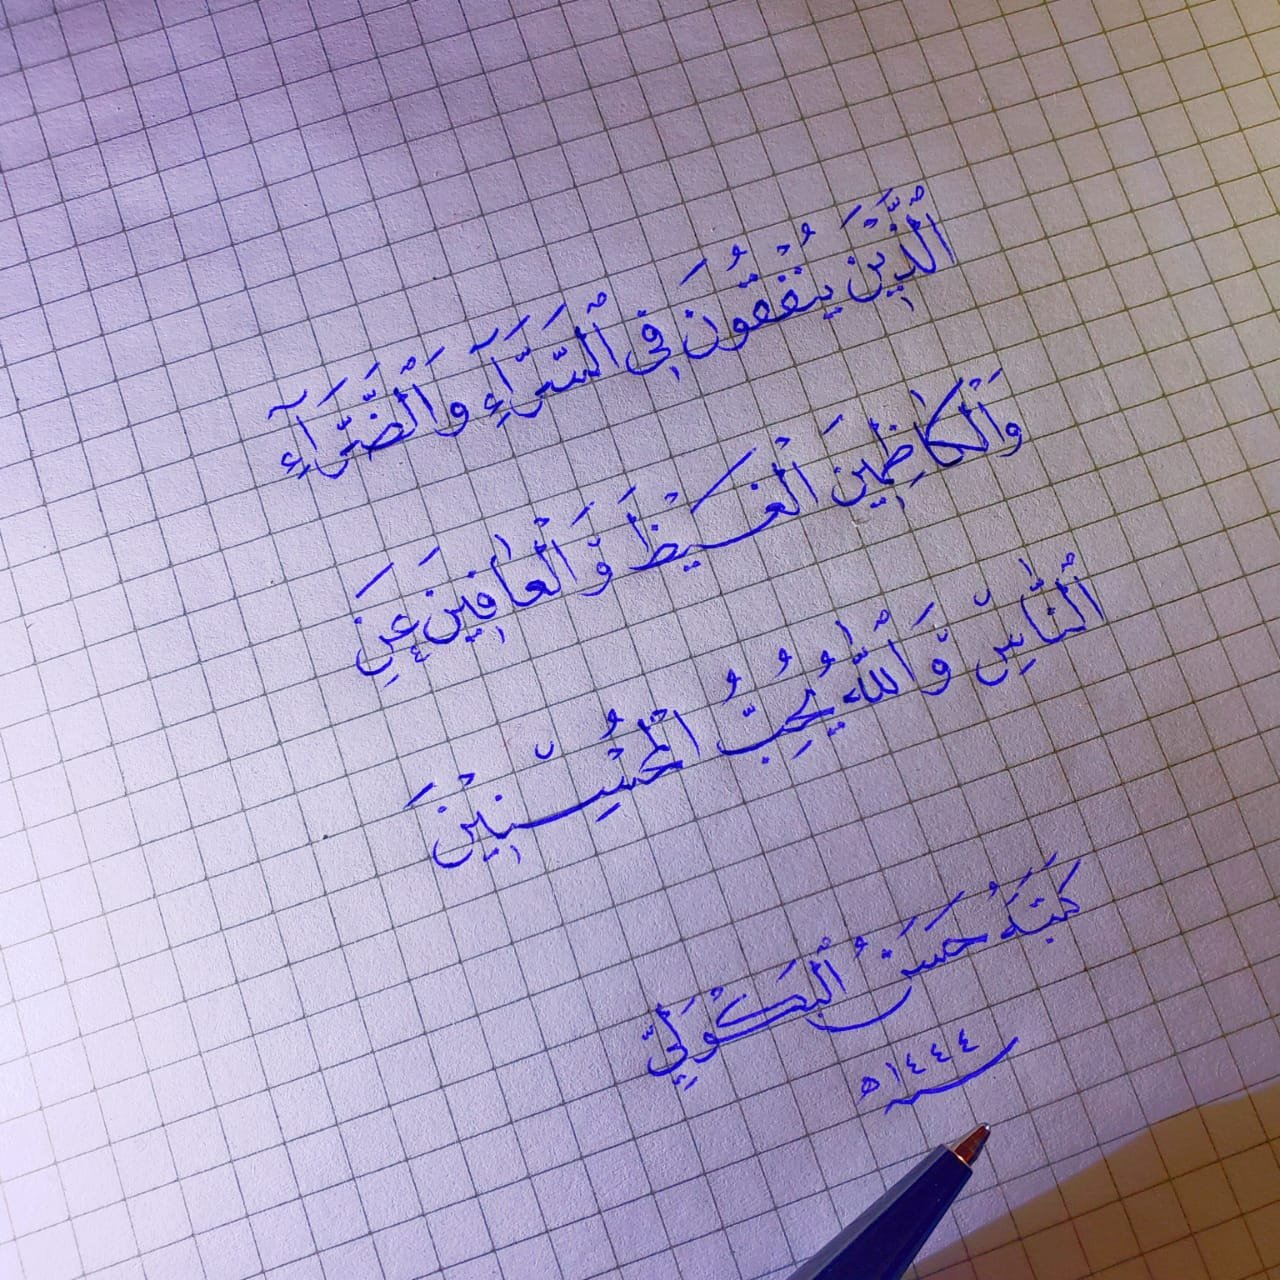 ٱلَّذِيْنَ يُنْفِقُونَ فِى ٱلسَّرَّآءِ وَٱلْضَّرَّآءِ
وَٱلْكَاظِمِينَ الْغَيْظَ وَّالْعَافِينَ عَنِ
ٱلنَّاسِّ وَّٱللّٰهُ يُحِبُّ الْمُحْسِنِيْنَ
كَتَبَهُ حَسَنُ الْبَكْوَلِيِّ
١٤٤٤ ه